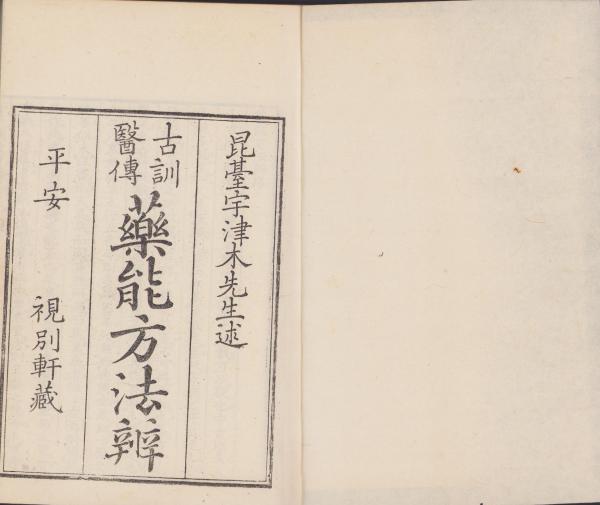 昆臺宇津木先生述
古訓
醫傳
藥能方法辨
平安 視別軒藏